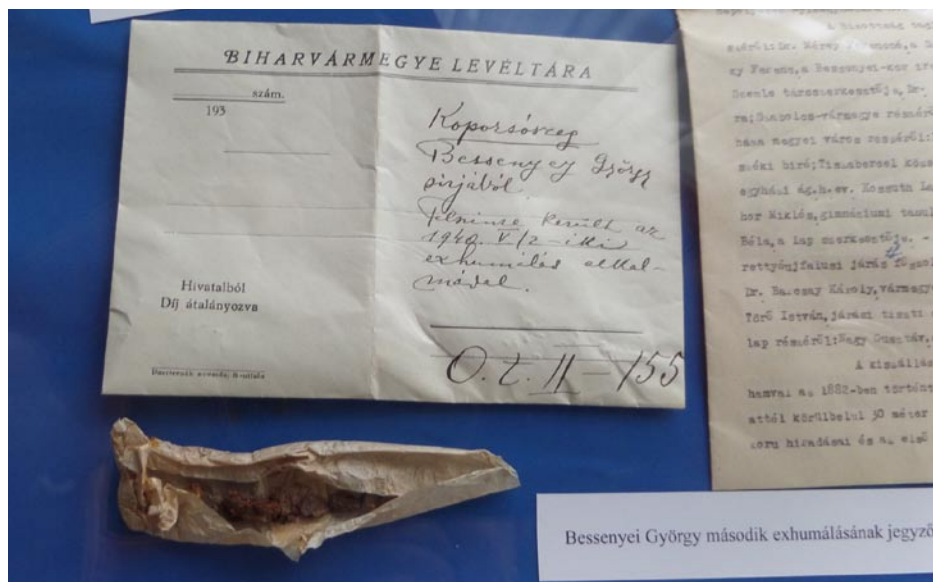 BIHARVÁRMEGYE LEVÉLTÁRA
szám.
193
Koporsószeg
Bessenyey György
sirjából.
Felszinre került az
1940. V/2-iki
exhumálás alkal-
mával.
Hivatalból
Díj átalányozva
O. t. II – 155
A bizottság tag
ky Ferenc, a Bessenyei-kor ir
Dezső társszerkesztője, Dr.
ra; Szabolcs-vármegye részérő
háza megyei város részéről:
széki biró; Tiszabercel közs
egyházi ág.h.ev. Kossuth La
bor Miklós, gimnáziumi tanul
Béla, a lap szerkesztője. -
rettyóujfalusi járás főszol
Dr. Barcsay Károly, vármegy
Törő István, járási tiszti
lap részéről: Nagy Gusztáv,
A kiszállás
hamvai az 1882-ben történt
attól körülbelül 50 méter
koru hiradásai és az első
Bessenyei György második exhumálásának jegyző